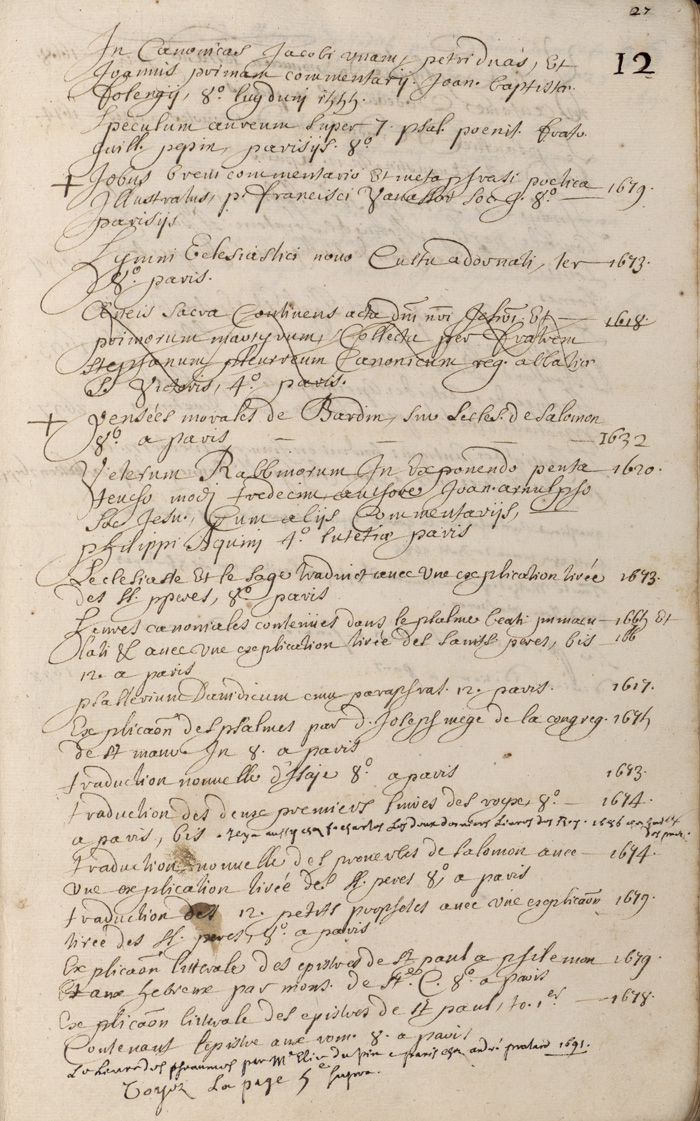 27
12
In Canonicas Jacobi unam, petri duas, Et
Joannis primam commentarij Joan. baptistæ
folengij, 8º. lugduni 1555.
Speculum aureum super 7. psal. poenit. frat.
guill. pepin, parisijs. 8º
+ Jobus brevi commentario Et metaphrasi poetica — 1679.
Illustratus, p. francisci Vavassor Soc. J. 8º.
parisijs
Hymni Ecclesiastici novo Cultu adornati, ter — 1673.
8º. paris.
Æneis Sacra Continens acta dñi nri Jesu, Et — 1618
primorum martyrum, Collecta per fratrem
stephanum pleurreum Canonicum reg. abbatiæ
S. Victoris, 4º. paris.
+ pensées morales de Bardin, sur Leccles. de Salomon
8º a paris — 1632
Veterum Rabbinorum In Exponendo penta — 1620.
teucho modi tredecim Joan. arnulpho
Soc. Jesu, Cum alijs Commentarijs,
philippi Aquini 4º. lutetiæ paris
Lecclesiaste Et le Sage traduict avec Une explication tirée 1673.
des SS. pperes, 8º paris
heures canoniales contenües dans le psalme beati immacu — Et
lati &c avec Une explication tirée des Saints peres, bis —
12. a paris
psalterium Davidicum cum paraphras. 12. paris. 1617.
Explicaõn des psalmes par d. Joseph mege de la congreg. 1675
de st maur In 8. a paris
traduction nouvelle d'Isaje 8º a paris 1673.
traduction des deux premiers livres des roys, 8º — 1674
a paris, bis
traduction nouvelle des proverbes de Salomon avec — 1674.
Une explication tirée des SS. peres 8º, a paris
traduction des 12. petits prophetes avec Une explicaõn 1679.
tirée des SS. peres, 8º. a paris
Explicaõn litterale des epistres de st paul a philemon — 1679.
Et aux hebreux par mons. de 8º. a paris
Explicaõn litterale des epistres de st paul, to. 1er — 1678.
Contenant lepistre aux rom. 8. a paris
Le livre des pseaumes par Mr Elie du pin a paris chez andré pralard 1691.
Voyez La page 5e supra.